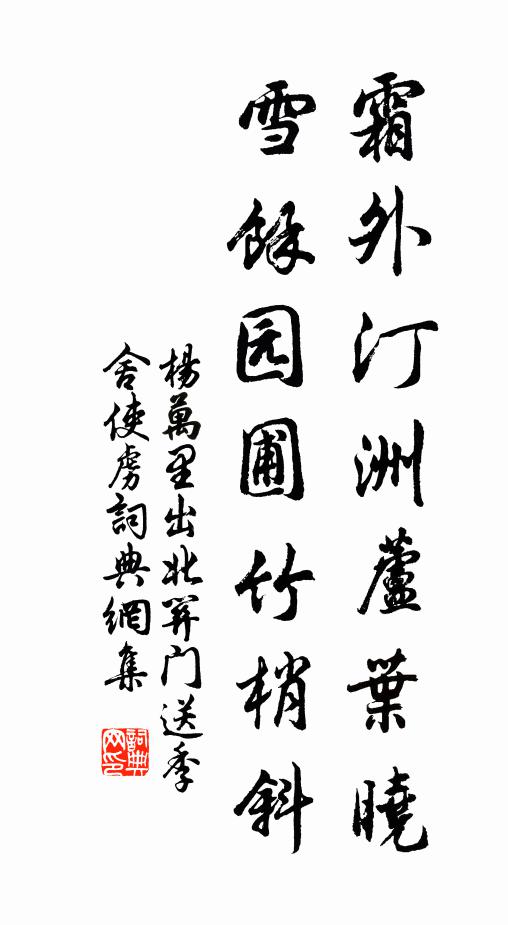 霜外汀洲蘆葉曉
雪餘园圃竹梢斜
楊萬里出北关門送季
舍使虏詞典網集
詞典网印